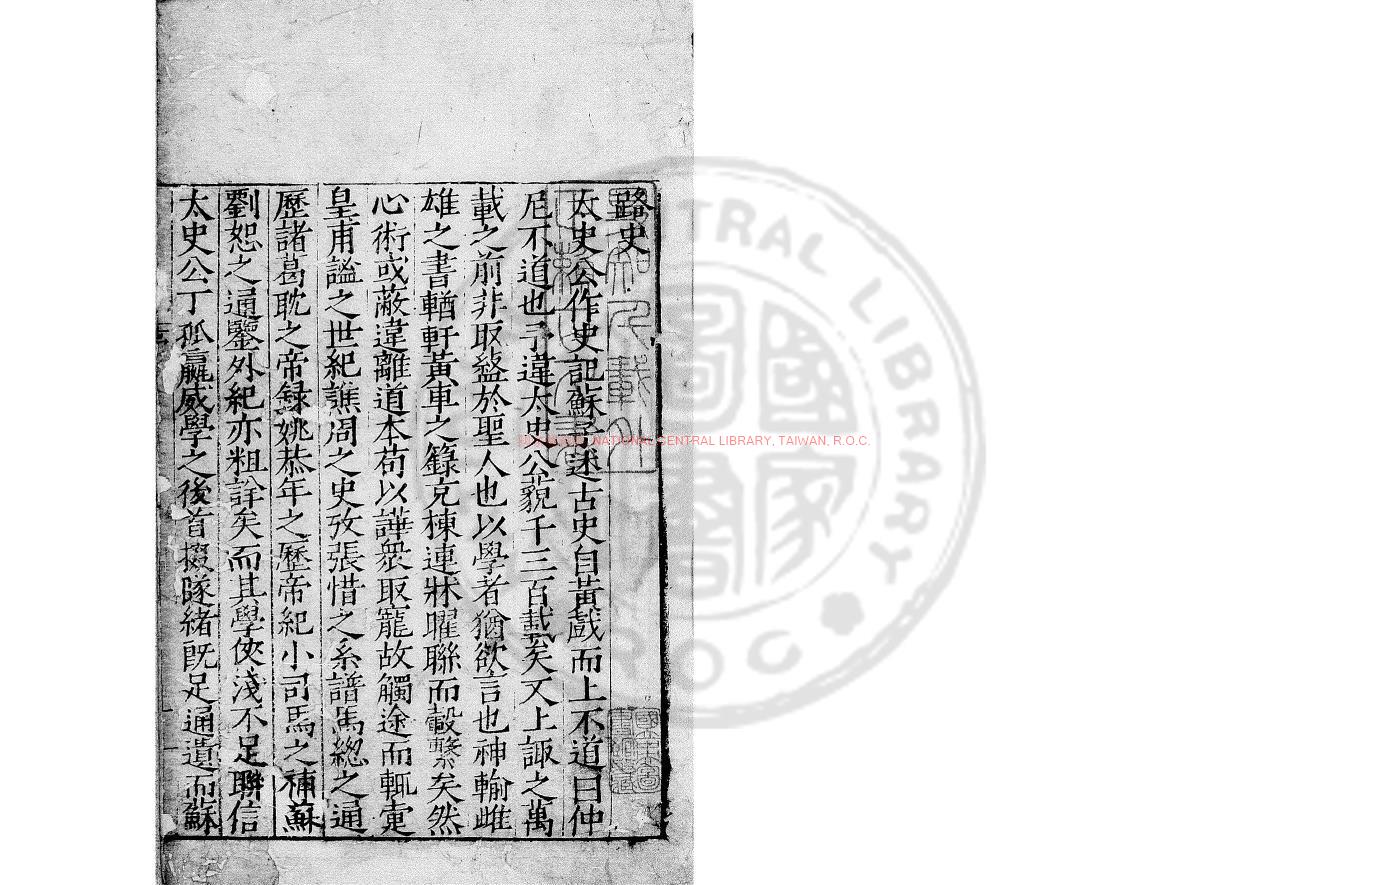 路史
太史公作史記蘇子述古史自黃戲而上不道曰仲
尼不道也予違太史公藐千三百載矣又上諏之萬
載之前非取盭於聖人也以學者猶欲言也神輸雌
雄之書輶軒黃車之籙充棟連牀曜聯而轂繫矣然
心術或蔽違離道本苟以譁衆取寵故觸途而輒疐
皇甫謐之世紀譙周之史攷張愔之系譜馬總之通
歷諸葛耽之帝録姚恭年之歷帝紀小司馬之補蘇
劉恕之通鑒外紀亦粗詳矣而其學俠淺不足聯信
太史公丁孤嬴威學之後首掇隊緒旣足通遺而蘇
NATIONAL CENTRAL LIBRARY, TAIWAN, R.O.C.
CENTRAL LIBRARY
R.O.C